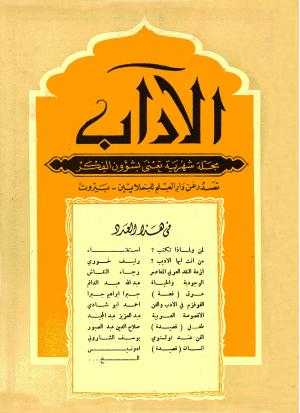 الآداب
مجلة شهرية تعنى بشؤون الفكر
تصدر عن دار العلم للملايين - بيروت
في هذا العدد
لمن ولماذا نكتب ؟ استفتاء
من انت ايها الاديب ؟ رئيف خوري
ازمة النقد العربي المعاصر رجاء النقاش
الوجودية والحياة عبد الله عبد الدائم
عرق ( قصة ) جبرا ابراهيم جبرا
القوقزم في الادب والفن احمد ابو شادي
الاقصوصة العربية عبد العزيز عبد المجيد
طفل ( قصيدة ) صلاح الدين عبد الصبور
الفن عند تولستوي يوسف الشاروني
انسان ( قصيدة ) ادونيس
الخ ...